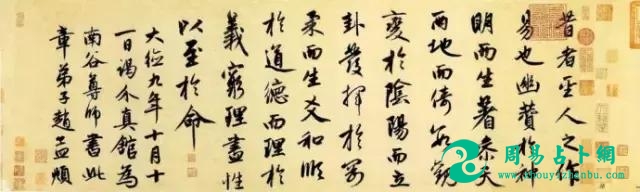 昔者聖人之作
易也幽贊於神
明而生蓍參天
兩地而倚數觀
變於陰陽而立
卦發揮於剛
柔而生爻和順
於道德而理於
義窮理盡性
以至於命
大德九年十月十
一日謁介真館為
南谷尊師書此
章弟子趙孟頫
周易占卜網